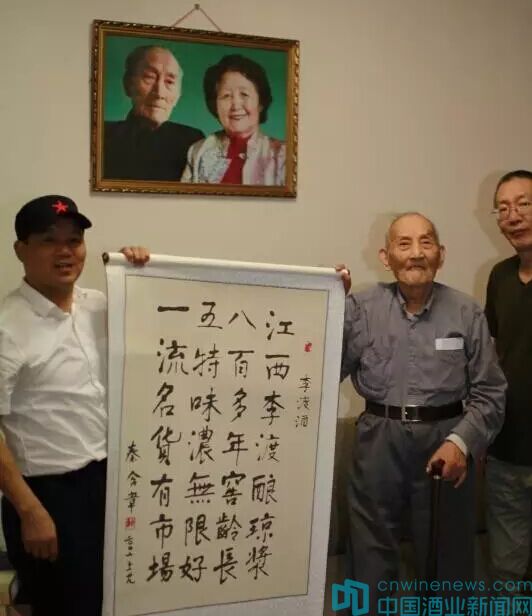 李渡酒
江西李渡酿琼浆
八百多年窖龄長
五特味濃無限好
一流名货有市場
秦含章
cnwinenews.com
中国酒业新闻网